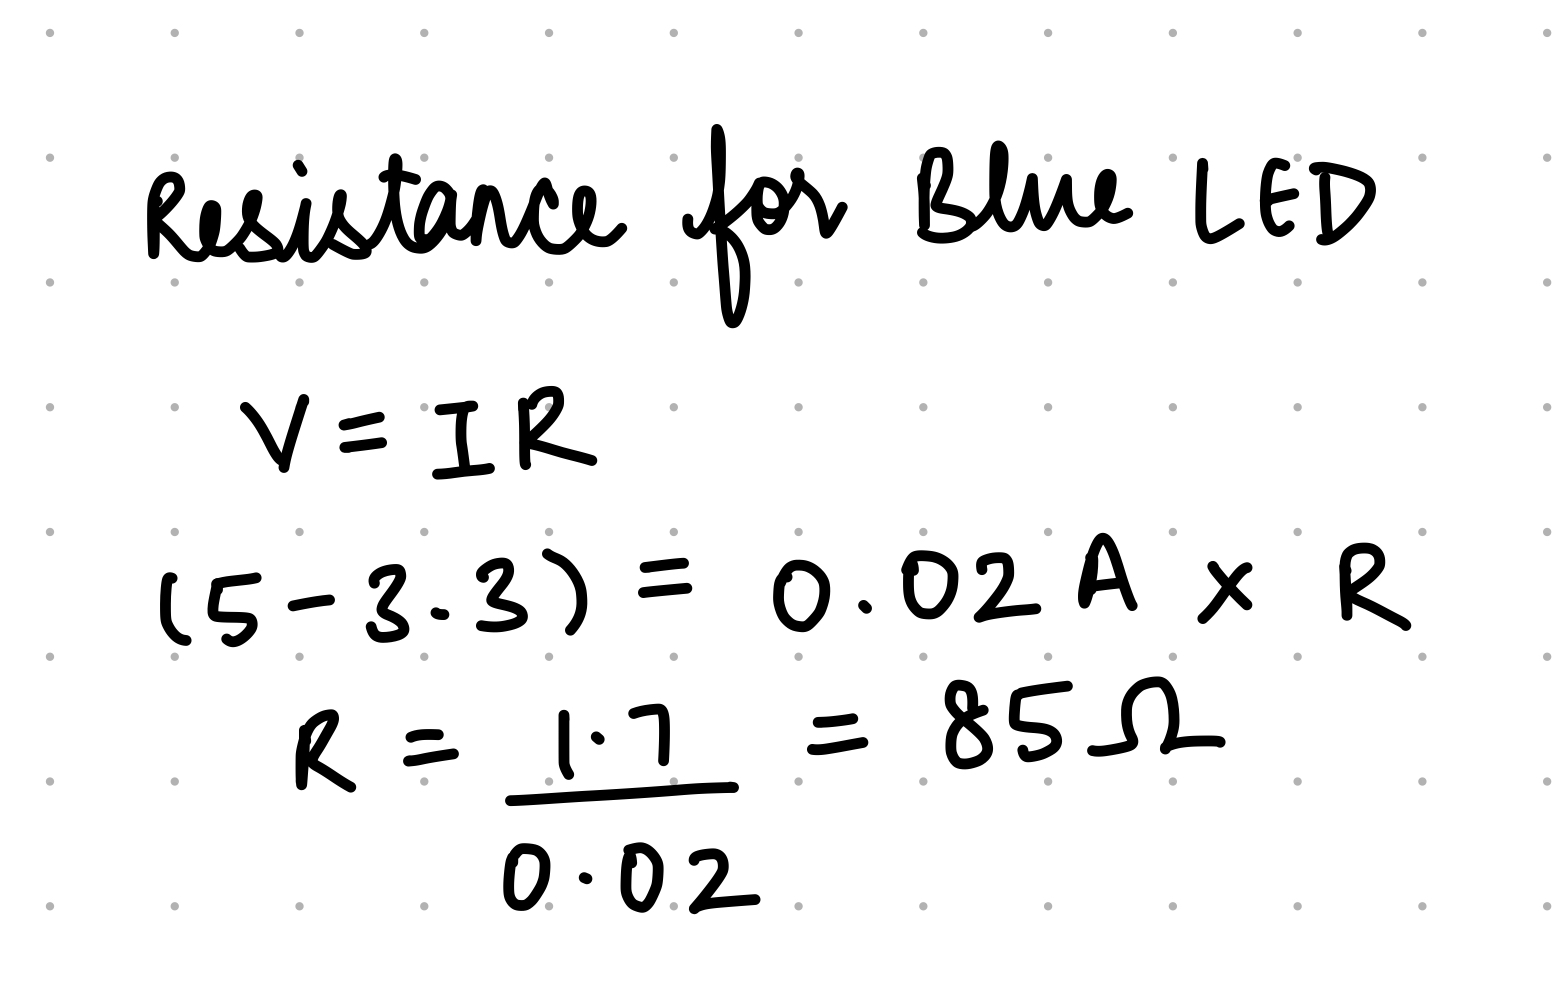 Resistance for Blue LED
V = IR
(5 - 3.3) = 0.02 A x R
R = 1.7 = 85 Ω
0.02